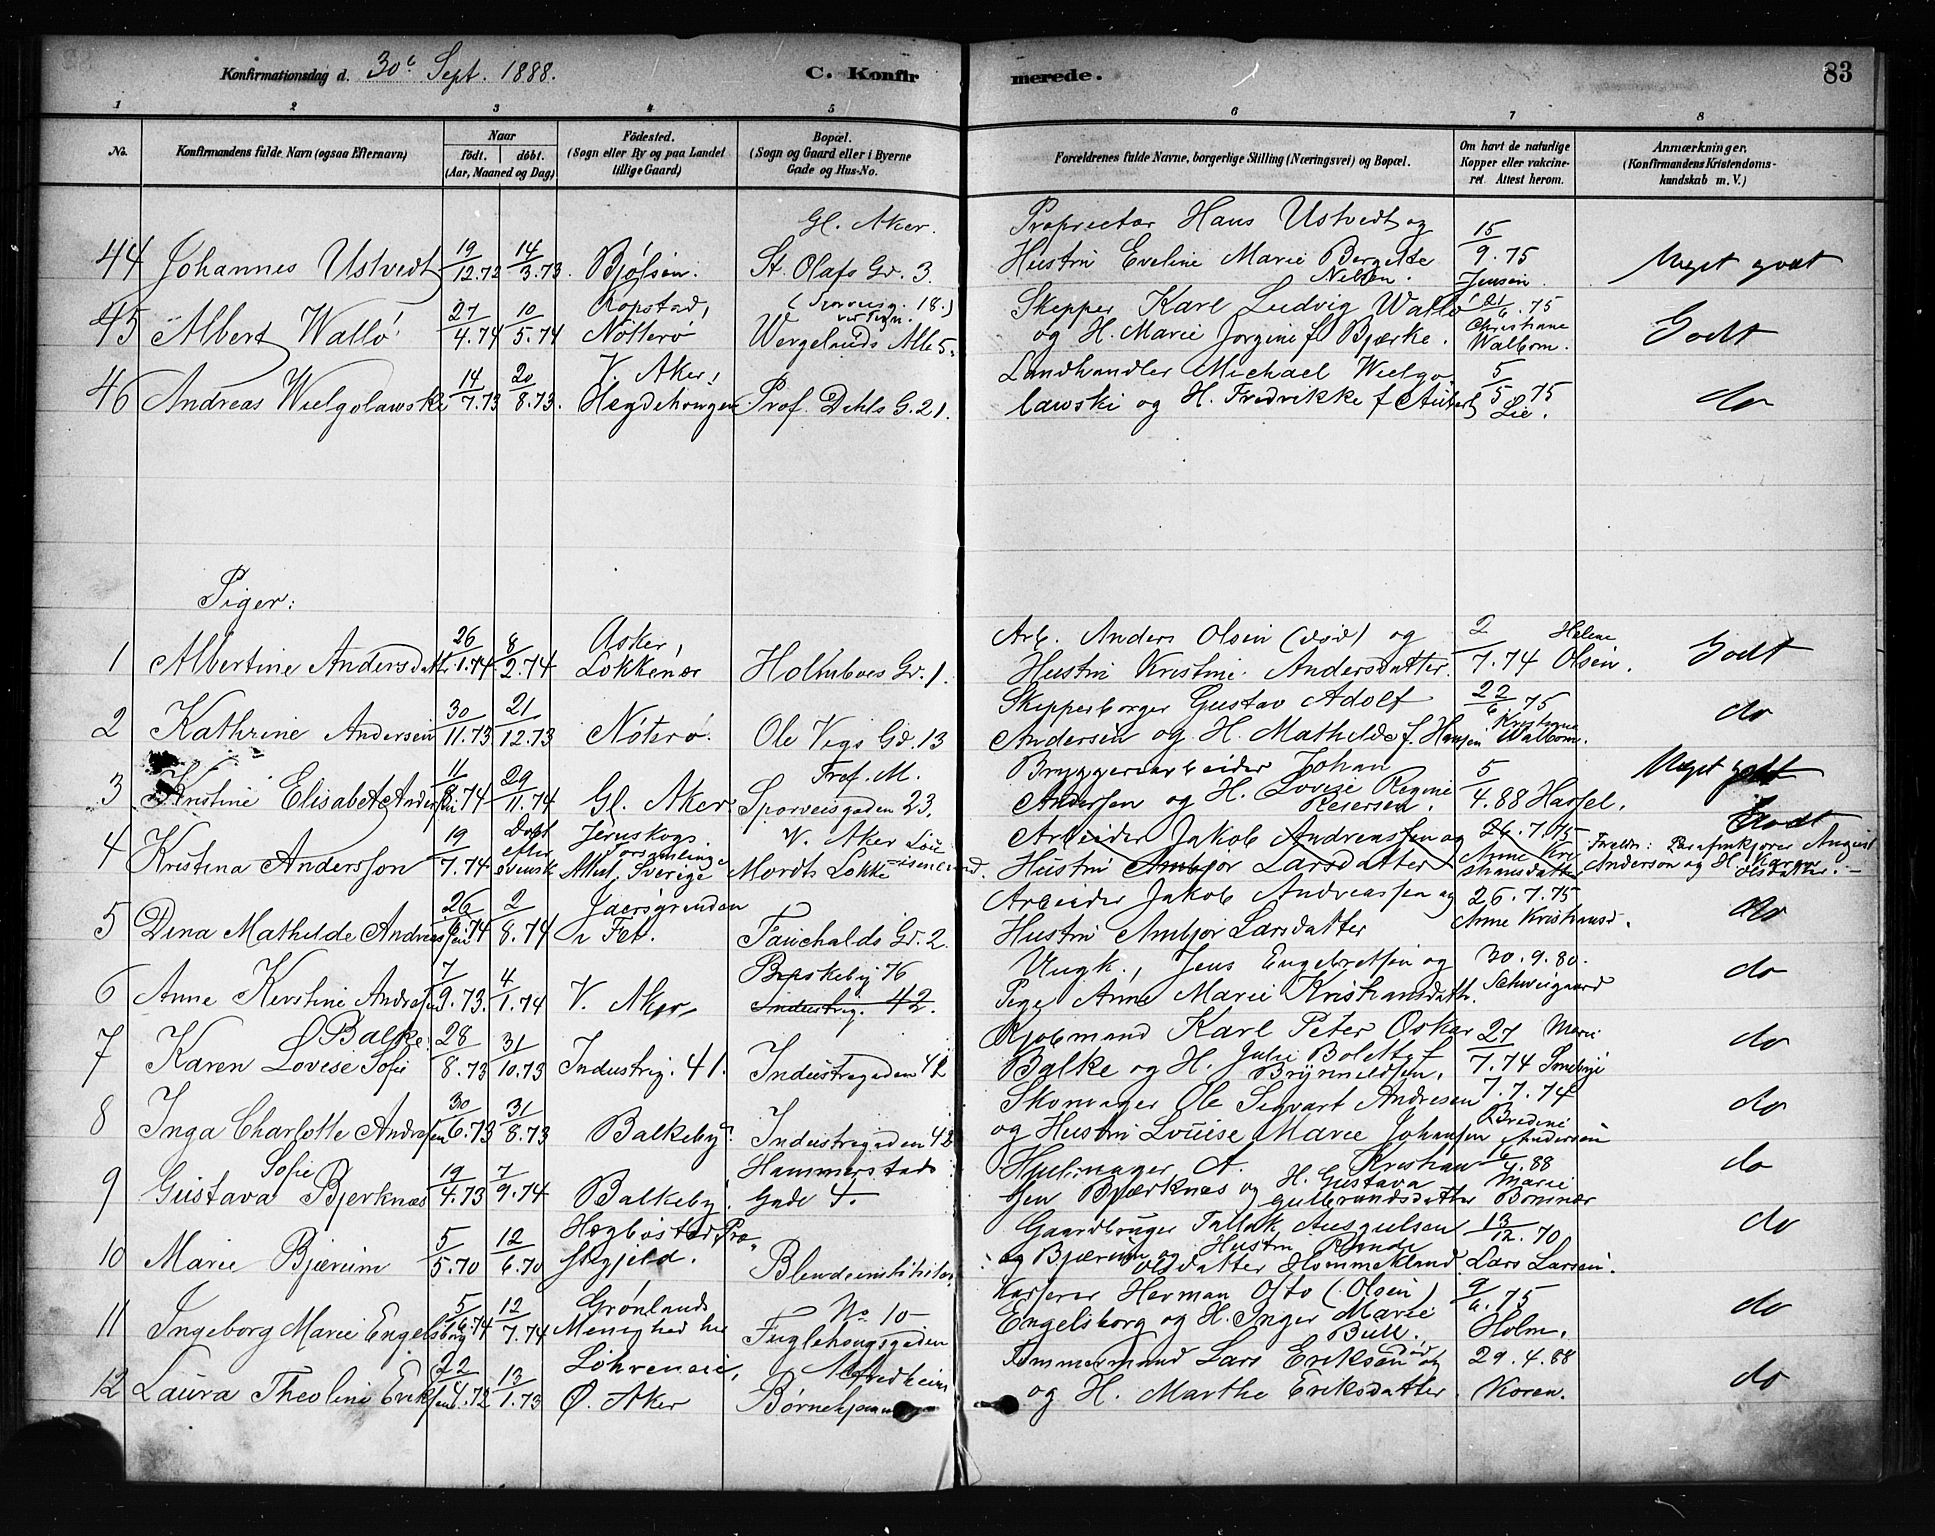 Konfirmationsdag d. 30te Sept. 1888. C. Konfirmerede. 83
1 2 3 4 5 6 7 8
No. Konfirmandens fulde Navn (ogsaa Efternavn) Naar født. døbt. (Aar, Maaned og Dag) Fødested. (Sogn eller By og paa Landet tillige Gaard) Bopæl. (Sogn og Gaard eller i Byerne Gade og Hus-No. Forældrenes fulde Navne, borgerlige Stilling (Næringsvei) og Bopæl. Om havt de naturlige Kopper eller vakcineret. Attest herom. Anmærkninger. (Konfirmandens Kristendomskundskab m. V.)
Gl. Aker. Proprietær Hans Ustvedt og
44 Johannes Ustvedt 19/12.72 14/3.73. Bjølsen. St. Olafs Gd. 3 Hustru Eveline Marie Bergette Nelsen. 15/9.75 Jensen. Meget godt
45 Albert Wallø 27/4.74 10/5.74 Nøtterø Wergelands Alle 5. Skipper Karl Ludvig Wallø
og H. Marie Jorgine f Bjærke. 21/6.75 Christiane Walbom. Godt
46 Andreas Wielgolawski 14/7.73 20/8.73. V. Aker, Hegdehougen Prof. Dahls G. 21. Landhandler Michael Wielgo
lawski og H. Fredrikke f Aubert 5/5 75 Lie. do
Piger:
1 Albertine Andersdatter 26/1.74. 8/2.74 Asker, Løkkenær Holmboes Gd. 1. Arb. Anders Olsen (død) og
Hustru Kristine Andersdatter. 2/7.74 Helene Olsen. Godt
2 Kathrine Andersen 30/11.73 21/12.73 Nøterø. Ole Vigs Gd. 13 Skipperborger Gustav Adolf
Andersen og H. Mathilde f. Hansen 22/6.75 Kristiane Walbom. do
3 Kristine Elisabet Andersen 11/8.74 29/11.74 Gl. Aker Prof. M. Sporveisgaden 23. Bryggeriarbeider Johan
Andersen og H. Lovise Regine 5/4.88 Harsel. Meget godt
4 Kristina Andersson 19/7.74 Døbt efter svensk Attest, Sverige V. Aker Mordts Løkke Arbeider Jakob Andreassen og
Hustru Ambjør Larsdatter 26.7.75 Anne Kristiansdatter Godt Foreldr: Parafinkjører August
Anderson og H. Karen Olsdatter.
5 Dina Mathilde Andreassen 26/6.74 2/8.74 i Fet. Fauchalds Gd. 2. Arbeider Jakob Andreassen og
Hustru Ambjør Larsdatter 26.7.75 Anne Kristiansd. do
6 Anne Kerstine Andrasen 7/9.73. 4/1.74 V. Aker Briskeby 76 Industrig. 42. Ungk., Jens Engebretsen og
Pige Anne Marie Kristiansdatt. 30.9.80. Schweigaard do
7 Karen Lovise Sofie Balke 28/8.73 31/10.73 Industrig. 41. Industrigaden 42 Kjøbmand Karl Peter Oskar
Balke og H. Julie Bolette f Brynnildsen. 27/7.74 Marie do
8 Inga Charlotte Andrasen 30/6.73 31/8.73 Balkeby. Industrigaden 42 Skomager Ole Sigvart Andresen
og Hustru Louise Marie Johansen 7.7.74 Andersen do
9 Gustava Sofie Bjerknæs 19/4.73 7/9.74 Balkeby. Hammerstads Gade 4. Hjulmager A. Kristian
sen Bjærknæs og H. Gustava Gulbrandsdatter 16/4.88 Marie Bomnær do
10 Marie Bjærum 5/5.70 12/6.70 Hægbostad Præ-
stegjeld. Blindeinstitutet Gaardbruger Tallak Ausgulsen
og Bjærum og Hustru Rande Olsdatter Hommekland. 13/12.70 Lars Larsen. do
11 Ingeborg Marie Engelsborg 5/6.74 12/7.74 Grønlands Menighed her No 10 Fuglehougsgaden Kasserer Herman Otto (Olsen)
Engelsborg og H. Inger Marie Bull. 9/6.75 Holm. do
12 Laura Theoline Eriksen 22/4.72 13/1.73 Ø. Aker Tømmermand Lars Eriksen død og
og H. Marthe Eriksdatter. 29.4.88 Koren. do